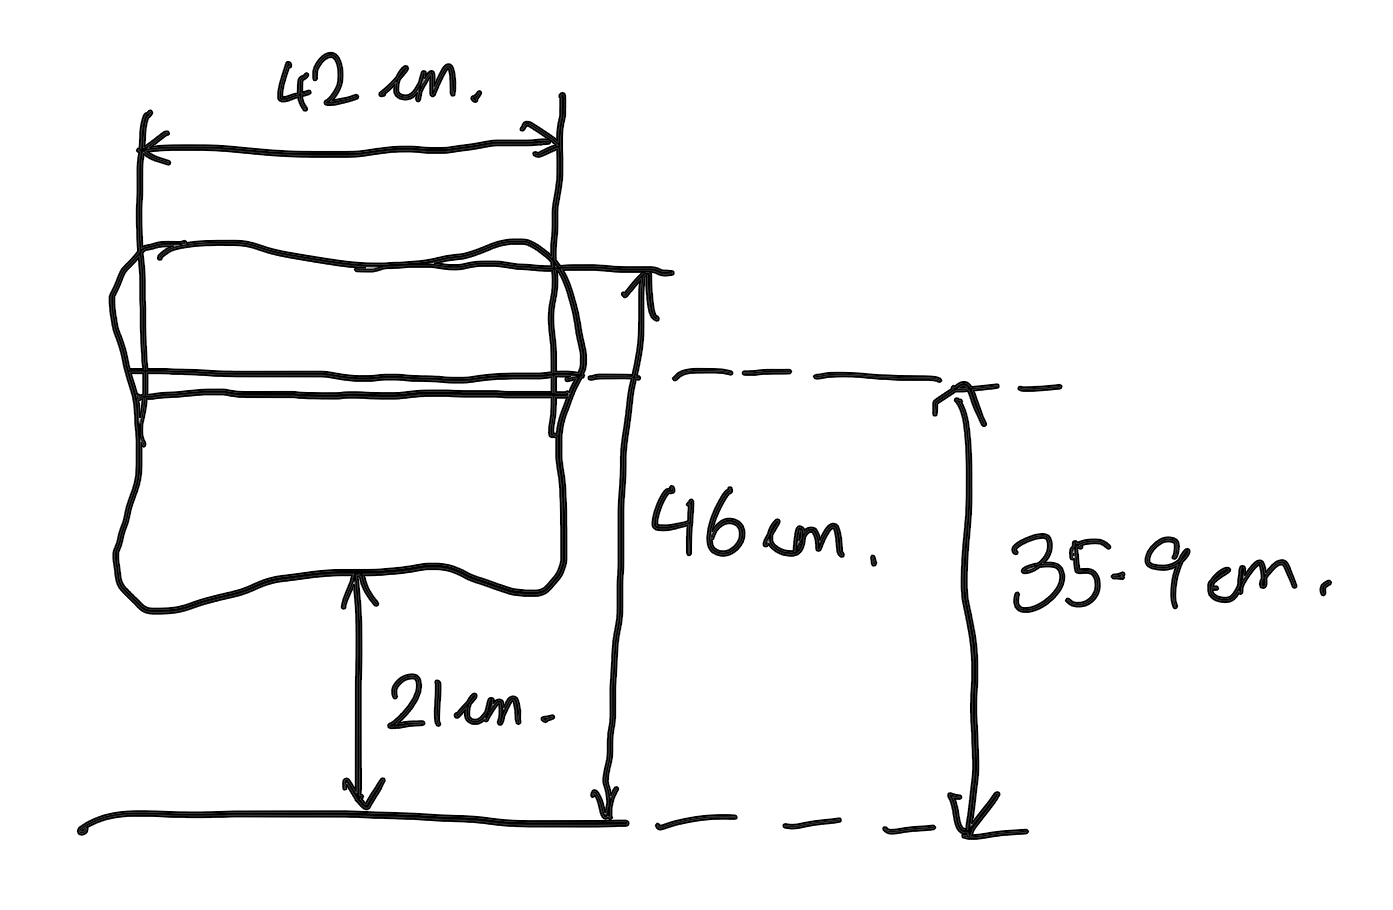 42 cm.
46 cm.
35.9 cm.
21 cm.